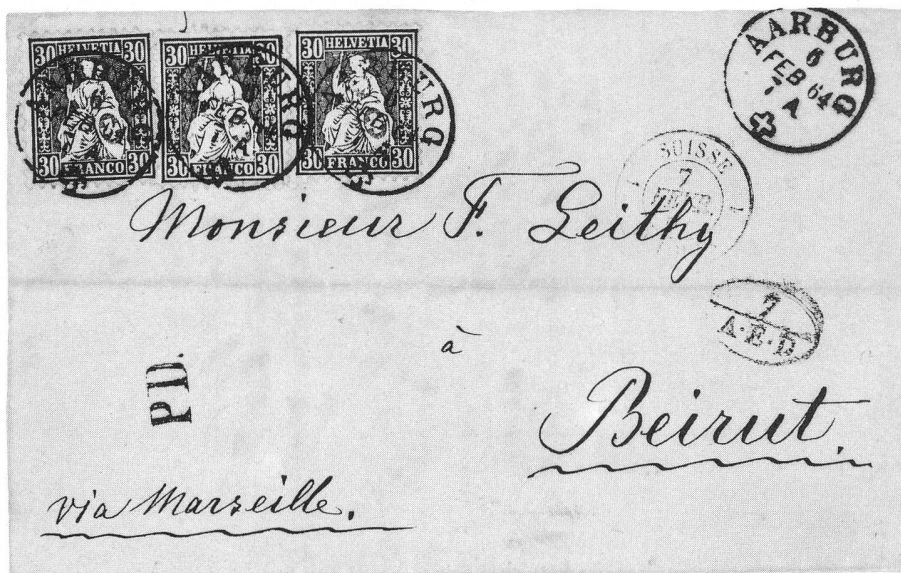 30 HELVETIA 30
30 FRANCO 30
30 HELVETIA 30
30 FRANCO 30
30 HELVETIA 30
30 FRANCO 30
AARBURG
6
FEB 64
7 A
SUISSE
7
FEVR
Monsieur F. Leithy
7
A·E·D
à
P.D.
Beirut.
via Marseille.